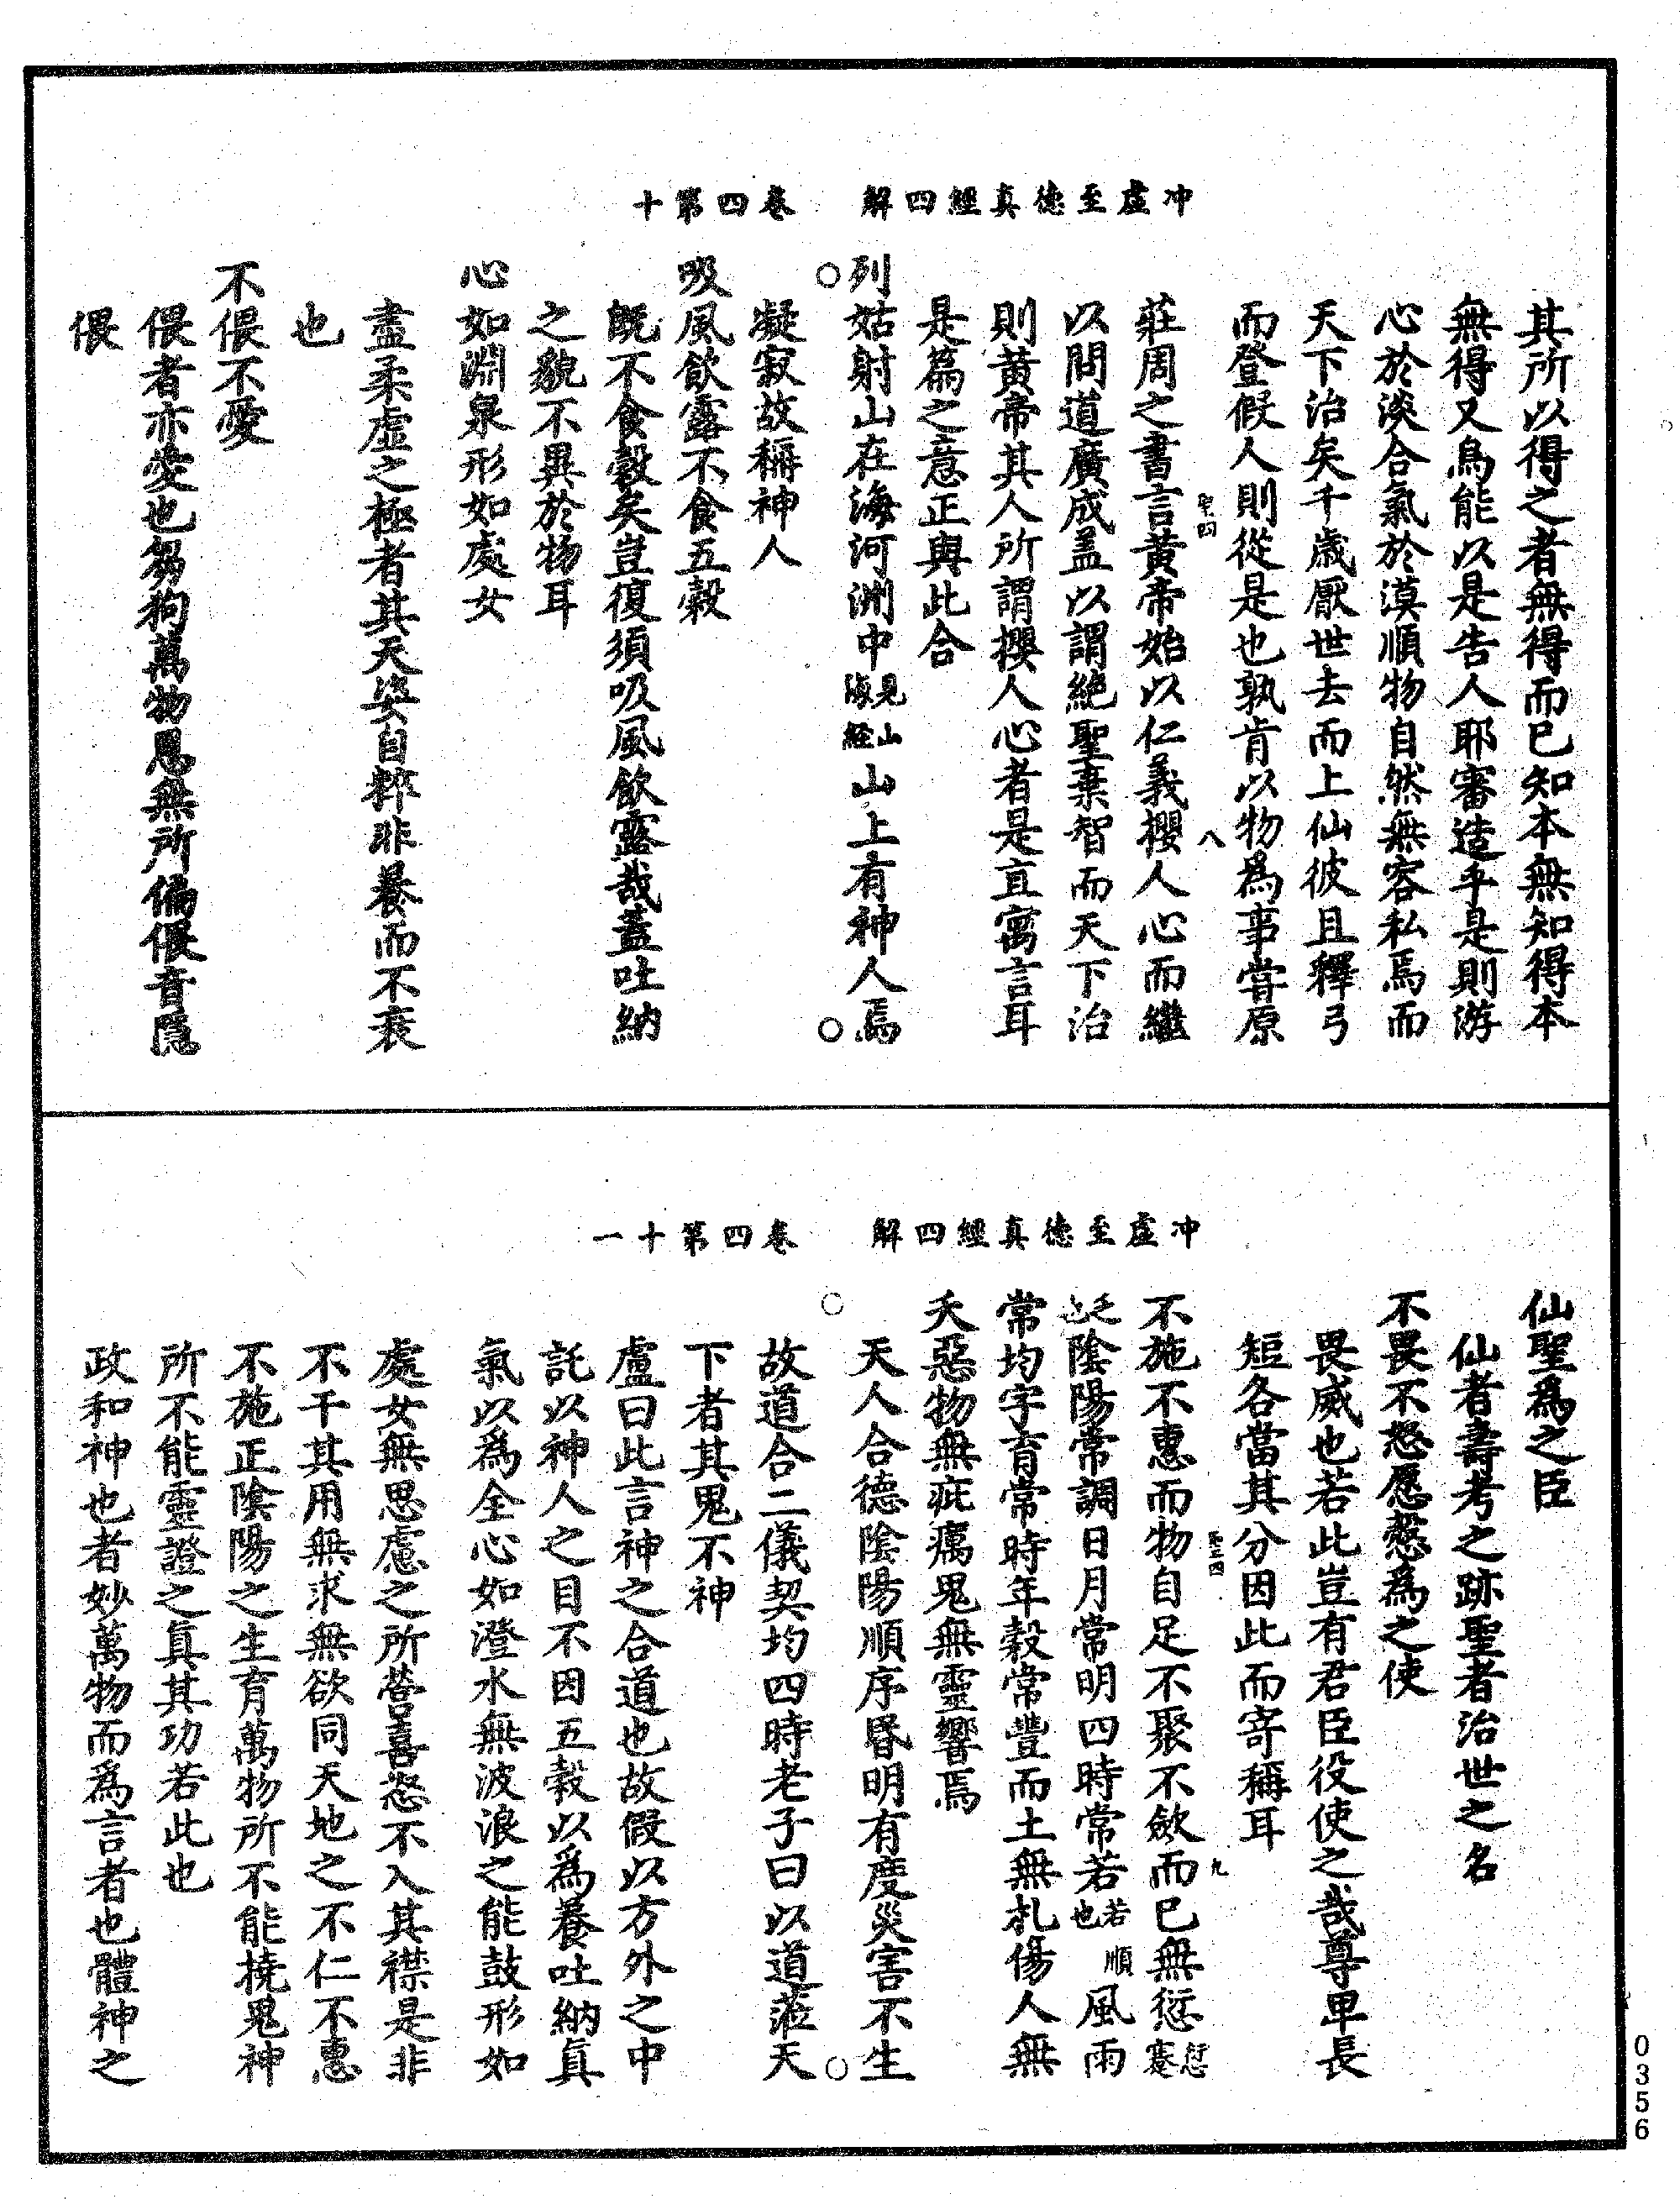 冲虛至德真經四解　卷四第十
其所以得之者無得而已知本無知得本
無得又烏能以是告人耶審造乎是則游
心於淡合氣於漠順物自然無容私焉而
天下治矣千歲厭世去而上仙彼且釋弓
而登假人則從是也孰肯以物爲事嘗原
聖四　八
莊周之書言黃帝始以仁義攖人心而繼
以問道廣成盖以謂絕聖棄智而天下治
則黃帝其人所謂攖人心者是直寓言耳
是篇之意正與此合
列姑射山在海河洲中見山海經山上有神人焉
凝寂故稱神人
吸風飲露不食五穀
既不食穀矣豈復須吸風飲露哉蓋吐納
之貌不異於物耳
心如淵泉形如處女
盡柔虛之極者其天姿自粹非養而不衰
也
不偎不愛
偎者亦愛也芻狗萬物恩無所偏偎音隱
偎
冲虛至德真經四解　卷四第十一
仙聖爲之臣
仙者壽考之跡聖者治世之名
不畏不怒愿慤爲之使
畏威也若此豈有君臣役使之哉尊卑長
短各當其分因此而寄稱耳
聖四　九
不施不惠而物自足不聚不歛而已無愆愆蹇
也陰陽常調日月常明四時常若若順也風雨
常均字育常時年穀常豐而土無札傷人無
夭惡物無疵癘鬼無靈響焉
天人合德陰陽順序昏明有度災害不生
故道合二儀契均四時老子曰以道蒞天
下者其鬼不神
盧曰此言神之合道也故假以方外之中
託以神人之目不因五穀以爲養吐納真
氣以爲全心如澄水無波浪之能鼓形如
處女無思慮之所營喜怒不入其襟是非
不干其用無求無欲同天地之不仁不惠
不施正陰陽之生育萬物所不能撓鬼神
所不能靈證之真其功若此也
政和神也者妙萬物而爲言者也體神之
0356